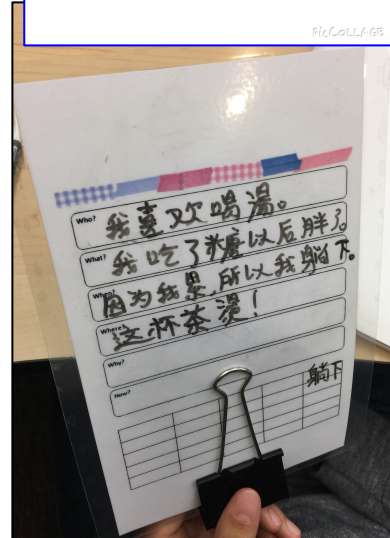 PicCOLLAGE
Who? 我喜欢喝湯。
What? 我吃了糖以后胖了。
When? 因为我累所以我躺下。
Where? 这杯茶烫!
Why?
How?
躺下